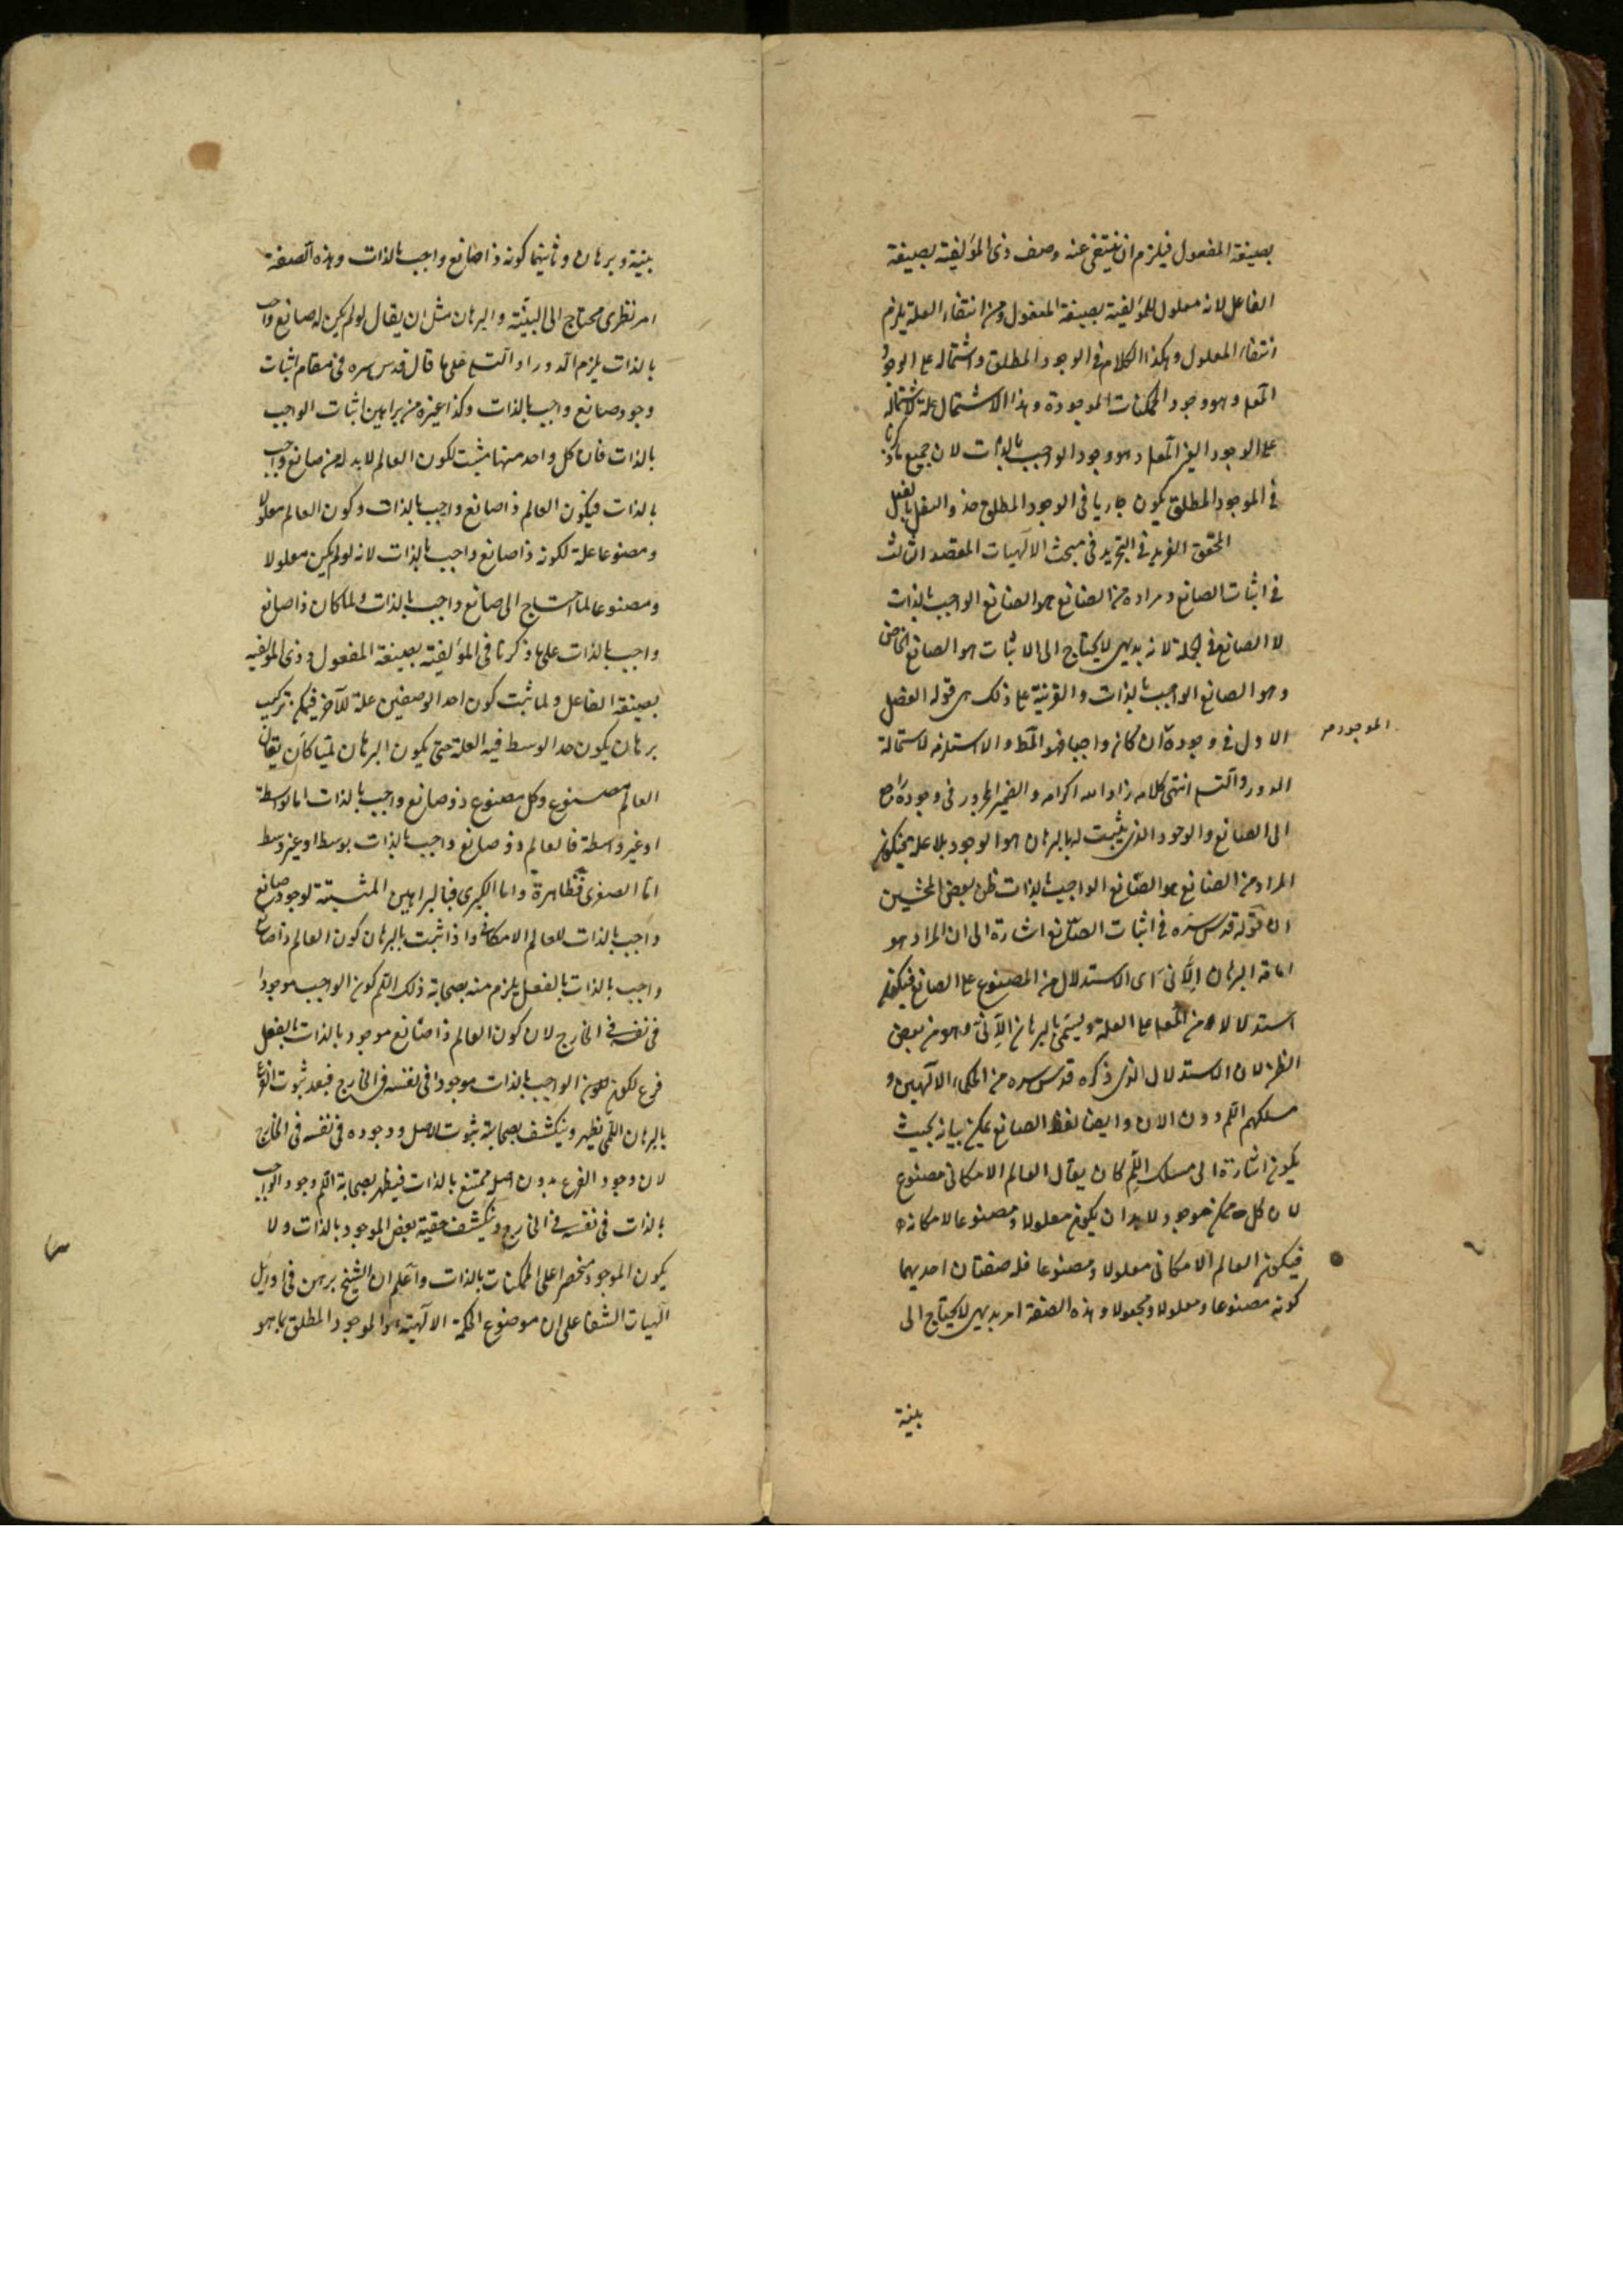 بصيغة المفعول فيلزم ان ينتفى عنه وصف ذى المؤلفية بصيغة
الفاعل لانه معلول للمؤلفية بصيغة المفعول ومن انتفاء العلة يلزم
انتفاء المعلول وهكذا الكلام فى الوجود المطلق واشتماله على الوجود
المعلول وهو وجود الممكنات الموجودة وهذا الاشتمال علة لاشتماله
على الوجود الغير المعلول وهو وجود الواجب بالذات لان جميع ما ذكرنا
فى الموجود المطلق يكون جاريا فى الوجود المطلق حذو النعل بالنعل
المحقق الفريد فى التجريد فى مبحث الالهيات المقصد الثالث
فى اثبات الصانع ومراده من الصانع هو الصانع الواجب بالذات
لا الصانع فى الجملة لانه بديهى لا يحتاج الى الاثبات هو الصانع الخاص
وهو الصانع الواجب بالذات والقرينة على ذلك هى قوله الفصل
الاول فى وجوده ان كان واجبا فهو المط والا استلزمه لاستحالة
الموجود صح
الدور والتسلسل انتهى كلامه زاد الله اكرامه والضمير المجرور فى وجوده راجع
الى الصانع والوجود الذى يثبت له بالبرهان هو الوجود بلا علة فيكون
المراد من الصانع هو الصانع الواجب بالذات ظن بعض المحشين
ان قوله قدس سره فى اثبات الصانع اشارة الى ان المراد هو
اقامة البرهان الانى اى الاستدلال من المصنوع على الصانع فيكون
استدلالا من المعلول على العلة ويسمى بالبرهان الانى وهو من بعض
الظن لان الاستدلال الذى ذكره قدس سره من الحكماء الالهيين و
مسلكهم اللم دون الان وايضا لفظ الصانع يمكن بيانه بحيث
يكون اشارة الى مسلك اللم كان يقال العالم الامكانى مصنوع
لان كل ممكن موجود لا بد ان يكون معلولا ومصنوعا لامكانه
فيكون العالم الامكانى معلولا ومصنوعا فله صفتان احديهما
كونه مصنوعا ومعلولا ومجعولا وهذه الصفة امر بديهى لا يحتاج الى
بينة
بينة وبرهان وثانيتهما كونه ذا صانع واجب بالذات وهذه الصفة
امر نظرى محتاج الى البينة والبرهان مثل ان يقال لو لم يكن له صانع واجب
بالذات يلزم الدور او التسلسل على ما قال قدس سره فى مقام اثبات
وجود صانع واجب بالذات وكذا غيره من براهين اثبات الواجب
بالذات فان كل واحد منها مثبت لكون العالم لا بد له من صانع واجب
بالذات فيكون العالم ذا صانع واجب بالذات وكون العالم معلولا
ومصنوعا علة لكونه ذا صانع واجب بالذات لانه لو لم يكن معلولا
ومصنوعا لما احتاج الى صانع واجب بالذات ولما كان ذا صانع
واجب بالذات على ما ذكرنا فى المؤلفية بصيغة المفعول وذى المؤلفية
بصيغة الفاعل ولما ثبت كون احد الوصفين علة للآخر فيمكن تركيب
برهان يكون حد الوسط فيه العلة حتى يكون البرهان لميا كان يقال
العالم مصنوع وكل مصنوع ذو صانع واجب بالذات اما بواسطة
او غير واسطة فالعالم ذو صانع واجب بالذات بوسط او غير وسط
اما الصغرى فظاهرة واما الكبرى فبالبراهين المثبتة لوجود صانع
واجب بالذات للعالم الامكانى واذا ثبت بالبرهان كون العالم ذا صانع
واجب بالذات بالفعل يلزم منه بصحابة ذلك اللم كون الواجب موجودا
فى نفسه فى الخارج لان كون العالم ذا صانع موجود بالذات بالفعل
فرع لكون الواجب بالذات موجودا فى نفسه فى الخارج فبعد ثبوت الفرع
بالبرهان اللمى يظهر وينكشف بصحابته ثبوت الاصل ووجوده فى نفسه فى الخارج
لان وجود الفرع بدون اصله ممتنع بالذات فيظهر بصحابة اللم وجود الواجب
بالذات فى نفسه فى الخارج وينكشف حقية بعض الموجود بالذات ولا
يكون الموجود منحصرا على الممكنات بالذات واعلم ان الشيخ برهن فى اوايل
الهيات الشفا على ان موضوع الحكمة الالهية هو الموجود المطلق بما هو